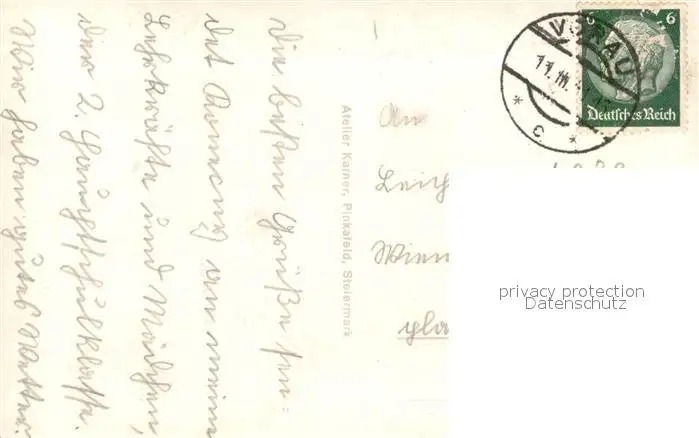 Die besten Grüße sen=
det Romang an meine
Lehrkräfte und Mädchen,
der 2. Hauptschulklasse.
Wir haben gutes Wetter.
Atelier Karner, Pinkafeld, Steiermark
An
Wien
VORAU
11.III.
* c *
6 6
Deutsches Reich
privacy protection
Datenschutz